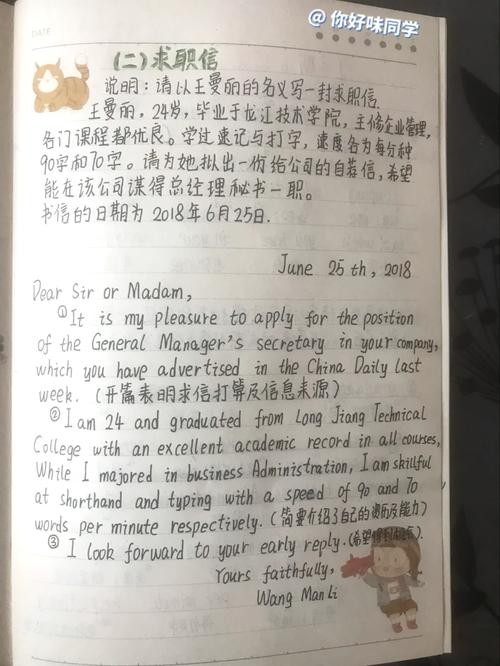 DATE
@ 你好味同学
(二)求职信
说明:请以王曼丽的名义写一封求职信.
王曼丽,24岁,毕业于龙江技术学院,主修企业管理,
各门课程都优良。学过速记与打字,速度各为每分钟
90字和70字。请为她拟出一份给公司的自荐信,希望
能在该公司谋得总经理秘书一职。
书信的日期为2018年6月25日.
June 25th, 2018
Dear Sir or Madam,
①It is my pleasure to apply for the position
of the General Manager's secretary in your company,
which you have advertised in the China Daily last
week. (开篇表明求信打算及信息来源)
②I am 24 and graduated from Long Jiang Technical
College with an excellent academic record in all courses,
While I majored in business Administration, I am skillful
at shorthand and typing with a speed of 90 and 70
words per minute respectively. (简要介绍了自己的經历及能力)
③ I look forward to your early reply. (希望得到
Yours faithfully,
Wang Man Li